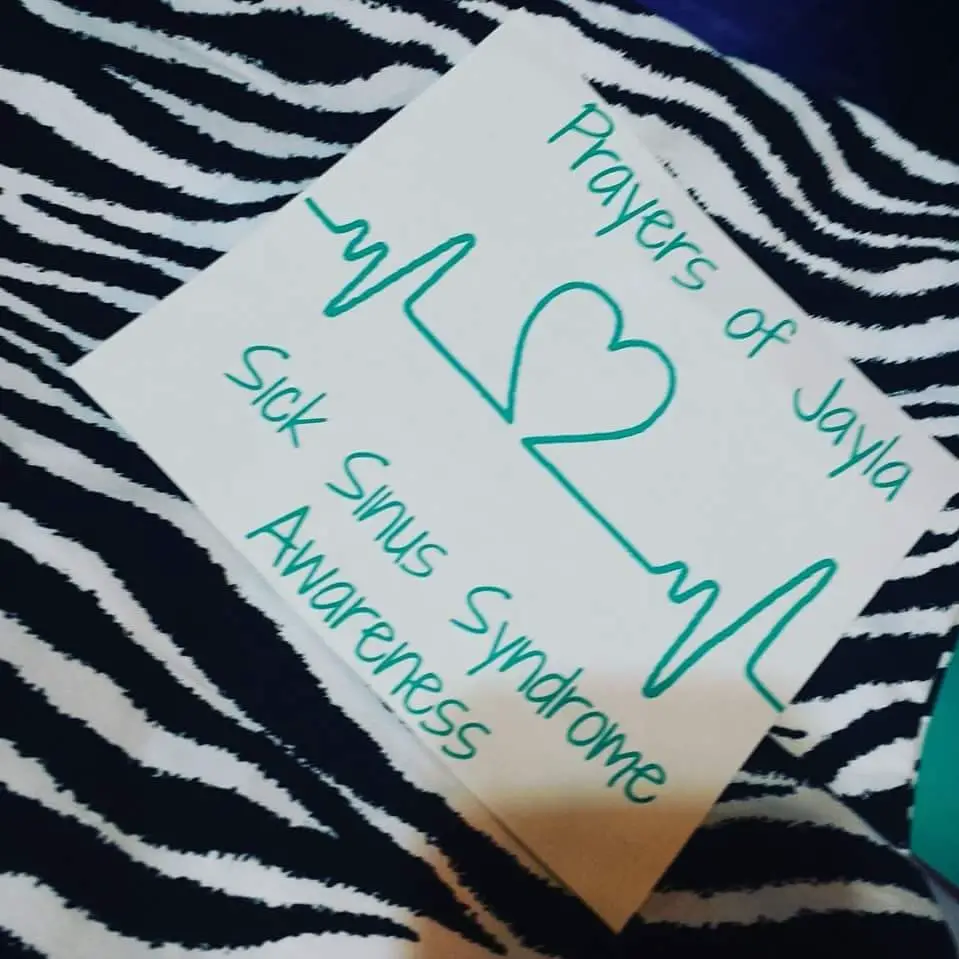 Prayers of Jayla
Sick Sinus Syndrome
Awareness